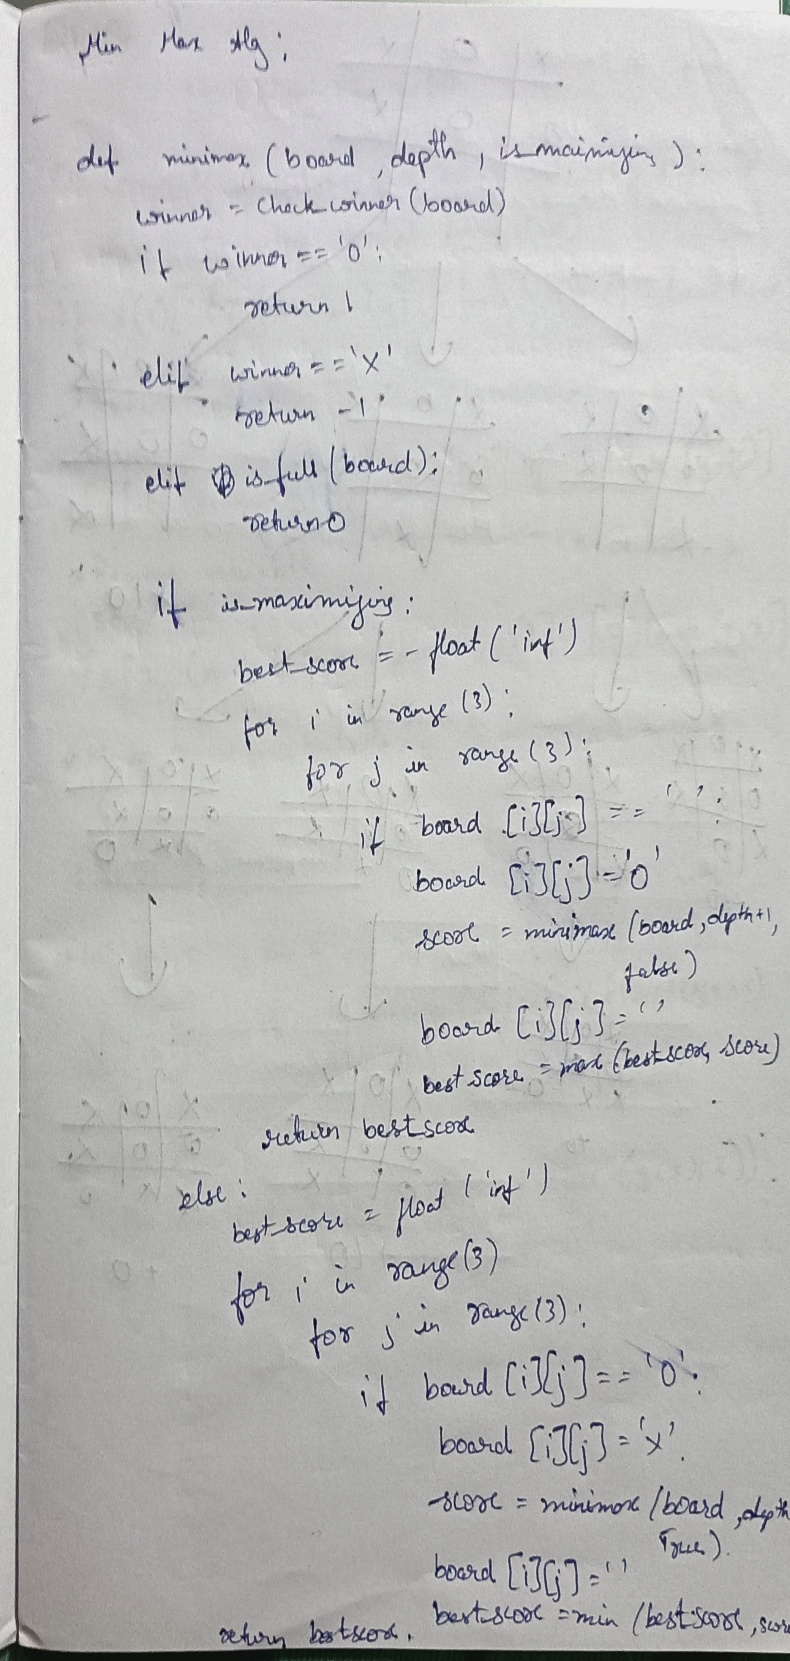 Min Max Alg :
def minimax (board, depth, is_maimizing):
winner = Check_winner (board)
if winner == 'O':
return 1
elif winner == 'X'
return -1
elif is_full (board):
return 0
if is_maximizing:
best_score = - float ('inf')
for i in range (3):
for j in range (3):
if board [i][j] == ' ':
board [i][j] = 'O'
score = minimax (board, depth+1,
false)
board [i][j] = ' '
best score = max (best score, score)
return best score
else :
best_score = float ('inf')
for i in range (3)
for j in range (3):
if board [i][j] == 'O':
board [i][j] = 'X'
score = minimax (board, depth
True).
board [i][j] = ' '
best_score = min (best score, score
return best score.